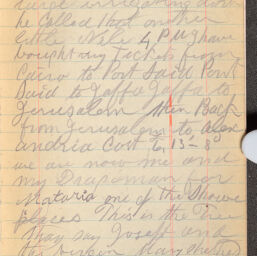 he called that on her
little Nele 4 P M I have
bought my Tickets from
Cairo to Port Said Port
Said to Jaffa Jaffa to
Jerusalem then Back
from Jerusalem to Alex
andria Cost 13-8
we are now me and
my Dragoman for
Mataria one of the Showe
places This is the Tree
they say Joseph and
the virgin Mary